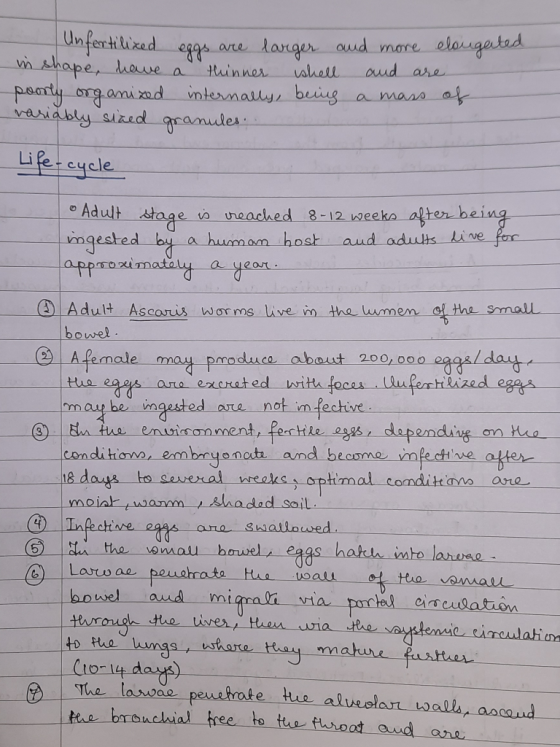 Unfertilized eggs are larger and more elongated
in shape, have a thinner shell and are
poorly organized internally, being a mass of
variably sized granules.
Life-cycle
° Adult stage is reached 8-12 weeks after being
ingested by a human host and adults live for
approximately a year.
① Adult Ascaris worms live in the lumen of the small
bowel.
② A female may produce about 200,000 eggs/day,
the eggs are excreted with feces. Unfertilized eggs
may be ingested are not infective.
③ In the environment, fertile eggs, depending on the
conditions, embryonate and become infective after
18 days to several weeks; optimal conditions are
moist, warm, shaded soil.
④ Infective eggs are swallowed.
⑤ In the small bowel, eggs hatch into larvae.
⑥ Larvae penetrate the wall of the small
bowel and migrate via portal circulation
through the liver, then via the systemic circulation
to the lungs, where they mature further
(10-14 days)
⑦ The larvae penetrate the alveolar walls, ascend
the bronchial tree to the throat and are